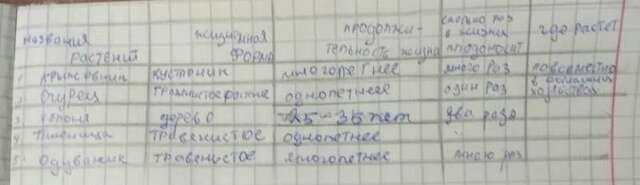 названия растений жизненная форма продолжительность жизни сколько раз в жизни плодоносит где растет
1 крыжовник кустарник многолетнее много раз повсеместно
2 Огурец травянистое однолетнее один раз в домашних хозяйствах
3 яблоня дерево 25-35 лет два раза
4 Пшеница травенистое однолетнее
5 Одуванчик травеньстое многолетнее много раз